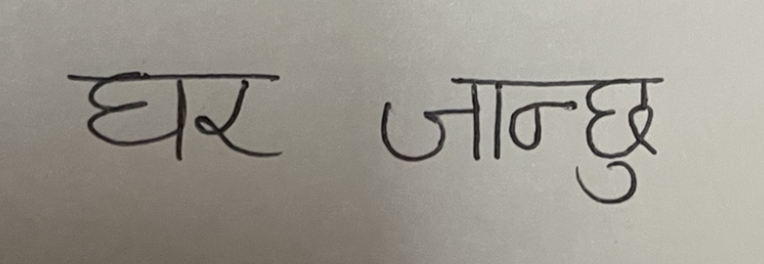 घर जान्छु